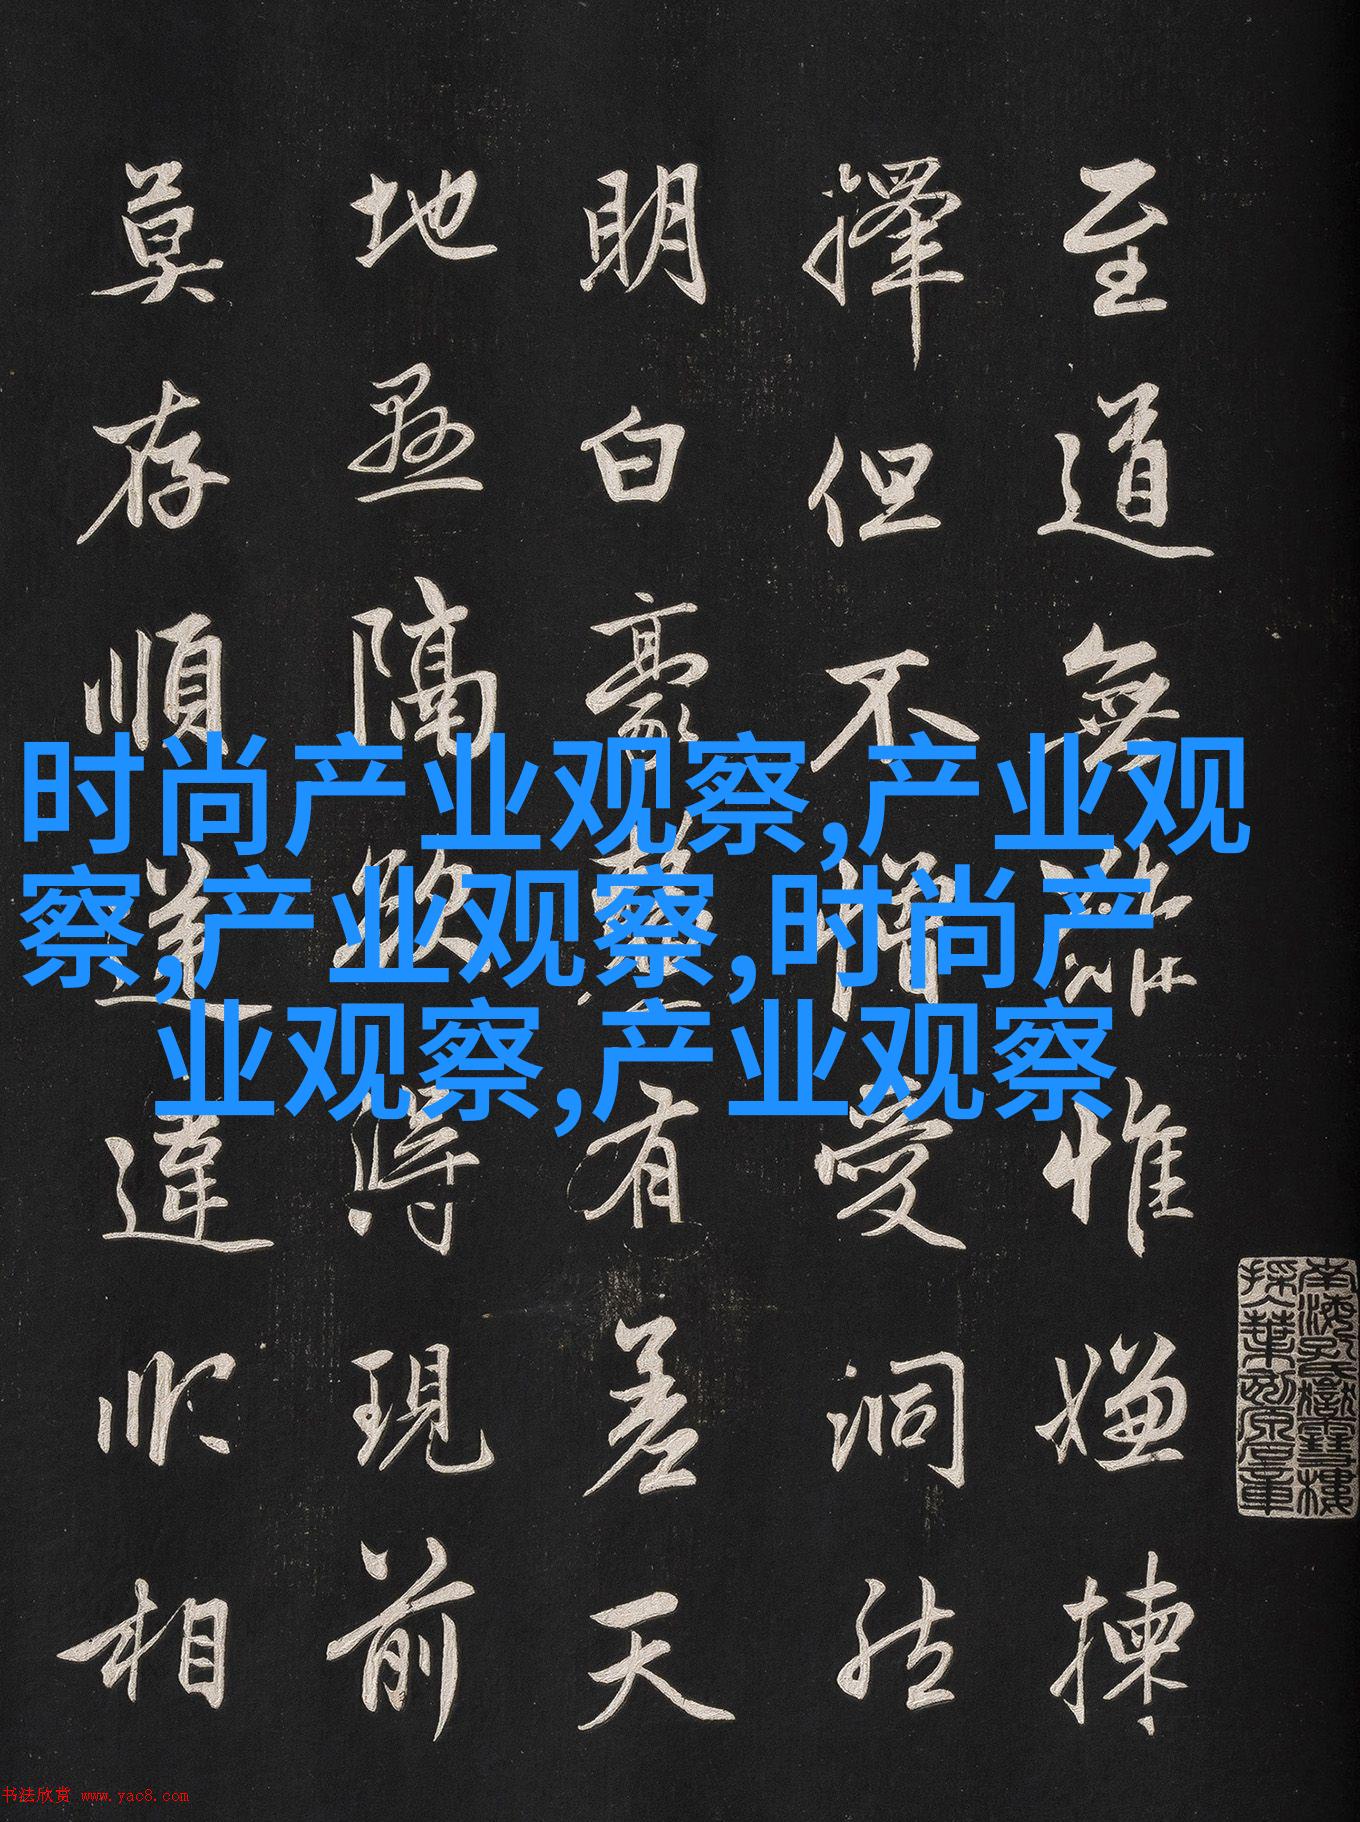 至道無難惟嫌揀
擇但不憎愛洞然
明白豪釐有差天
地懸隔欲得現前
莫存順逆違順相
时尚产业观察,产业观
察,产业观察,时尚产
业观察,产业观察
南海孔氏嶽雪樓
书法欣赏 www.yac8.com